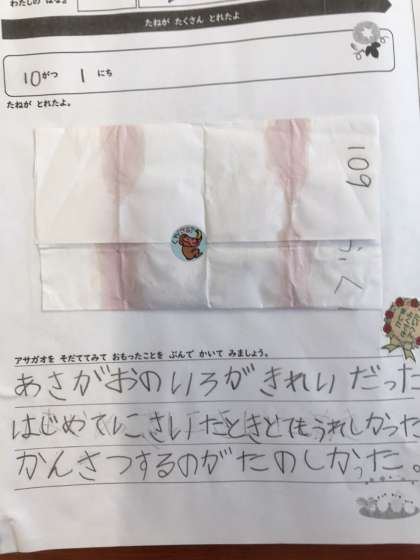 わたしの はな
たねが たくさん とれたよ
10がつ 1にち
たねが とれたよ。
109
アサガオを そだててみて おもったことを ぶんで かいて みましょう。
あさがおのいろがきれいだった
はじめて こさいたときとてもうれしかった
かんさつするのがたのしかった。